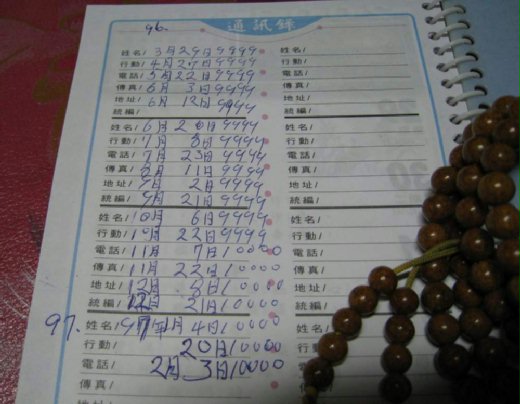 通訊錄
96.
姓名/ 3月29日9999
行動/ 4月29日9999
電話/ 5月22日9999
傳真/ 6月 3日9999
地址/ 6月 12日9999
統編/
姓名/ 6月 20日9999
行動/ 7月 8日9999
電話/ 7月 23日9999
傳真/ 8月 11日9999
地址/ 9月 2日9999
統編/ 9月 21日9999
姓名/ 10月 6日9999
行動/ 10月 22日9999
電話/ 11月 7日10000
傳真/ 11月 22日10000
地址/ 12月 8日10000
統編/ 12月 21日10000
97. 姓名/ 97年1月 4日10000
行動/ 20日10000
電話/ 2月 3日10000
傳真/
姓名/
行動/
電話/
傳真/
地址/
統編/
姓名/
行動/
電話/
傳真/
地址/
統編/
姓名/
行動/
電話/
傳真/
地址/
統編/
姓名/
行
電話
傳真/